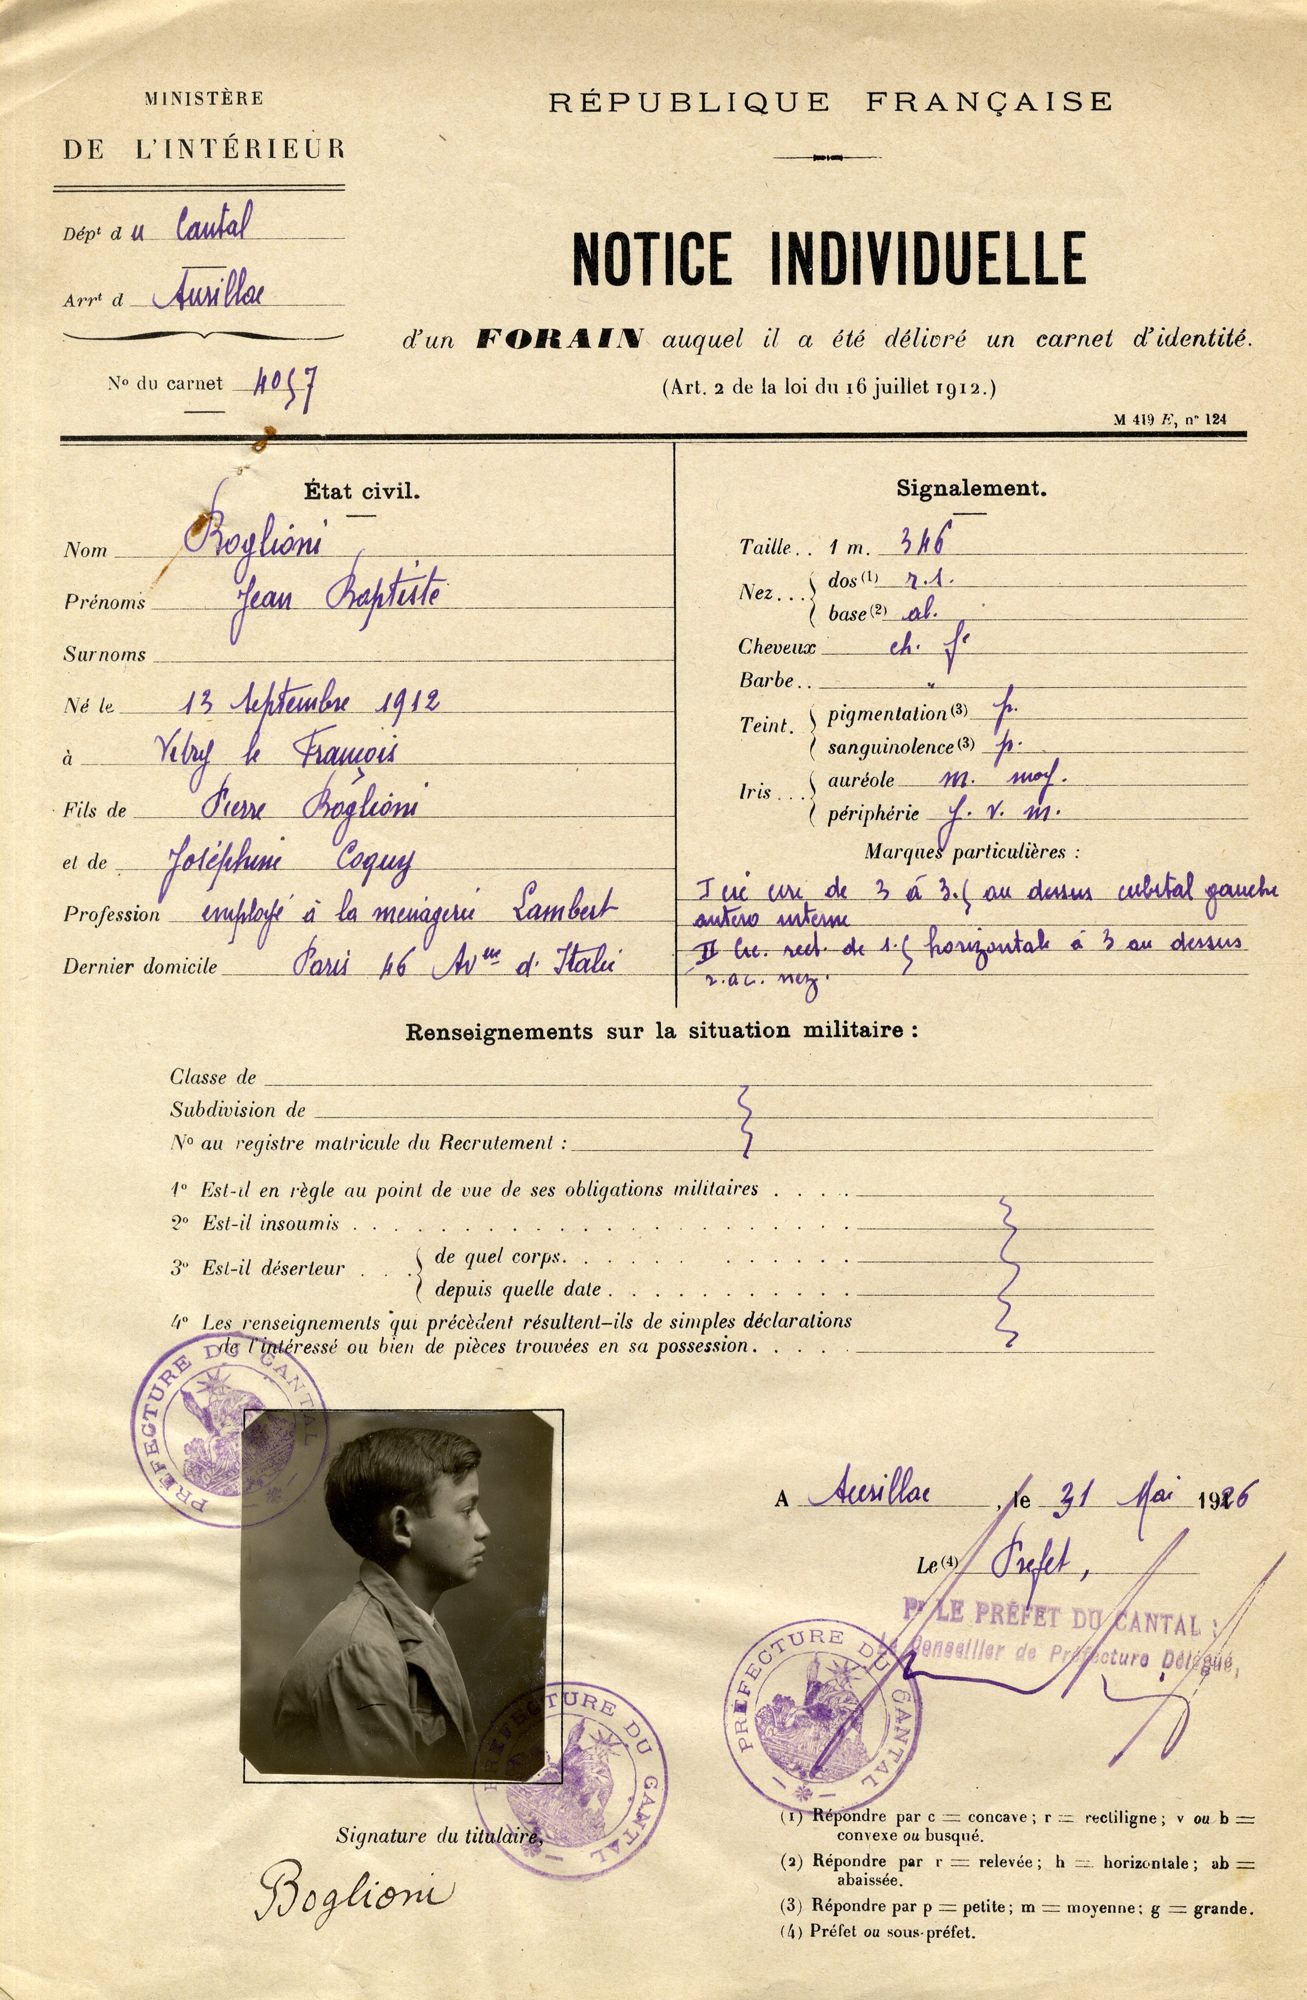 MINISTÈRE
DE L'INTÉRIEUR
Dépt du Cantal
Arrt d Aurillac
No du carnet 4057
RÉPUBLIQUE FRANÇAISE
NOTICE INDIVIDUELLE
d'un FORAIN auquel il a été délivré un carnet d'identité.
(Art. 2 de la loi du 16 juillet 1912.)
M 419 E, no 124
État civil.
Nom Boglioni
Prénoms Jean Baptiste
Surnoms
Né le 13 Septembre 1912
à Vitry le François
Fils de Pierre Boglioni
et de Joséphine Coquy
Profession employé à la ménagerie Lambert
Dernier domicile Paris 46 Avue d'Italie
Signalement.
Taille.. 1 m. 346
Nez... dos (1) r.s.
base (2) ab.
Cheveux ch. fé
Barbe.. "
Teint. pigmentation (3) p.
sanguinolence (3) p.
Iris... auréole m. moy.
périphérie j. v. m.
Marques particulières :
I cic de 3 à 3.5 au dessus cubital gauche
antero interne
II Cic. rect. de 1.5 horizontale à 3 au dessus
r.ac. nez.
Renseignements sur la situation militaire :
Classe de
Subdivision de
No au registre matricule du Recrutement :
1o Est-il en règle au point de vue de ses obligations militaires . . . .
2o Est-il insoumis . . . . . . . . . . . . . .
3o Est-il déserteur . . . de quel corps. . . . . . . . .
depuis quelle date . . . . . . . .
4o Les renseignements qui précèdent résultent-ils de simples déclarations
de l'intéressé ou bien de pièces trouvées en sa possession. . . . .
PRÉFECTURE DU CANTAL
A Aurillac, le 31 Mai 1926
Le (4) Préfet,
Pr LE PRÉFET DU CANTAL :
Le Conseiller de Préfecture Délégué,
PRÉFECTURE DU CANTAL
PRÉFECTURE DU CANTAL
Signature du titulaire,
Boglioni
(1) Répondre par c = concave ; r = rectiligne ; v ou b =
convexe ou busqué.
(2) Répondre par r = relevée ; h = horizontale ; ab =
abaissée.
(3) Répondre par p = petite ; m = moyenne ; g = grande.
(4) Préfet ou sous-préfet.